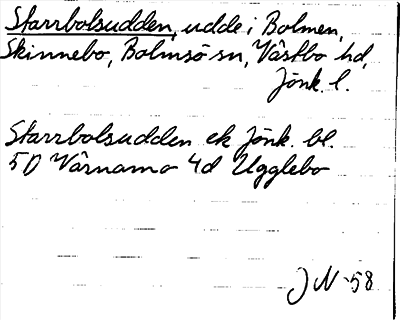 Starrbolsudden, udde i Bolmen,
Skinnebo, Bolmsö sn, Västbo hd,
Jönk. l.
Starrbolsudden ek Jönk. bl.
5D Värnamo 4d Ugglebo
JN 58